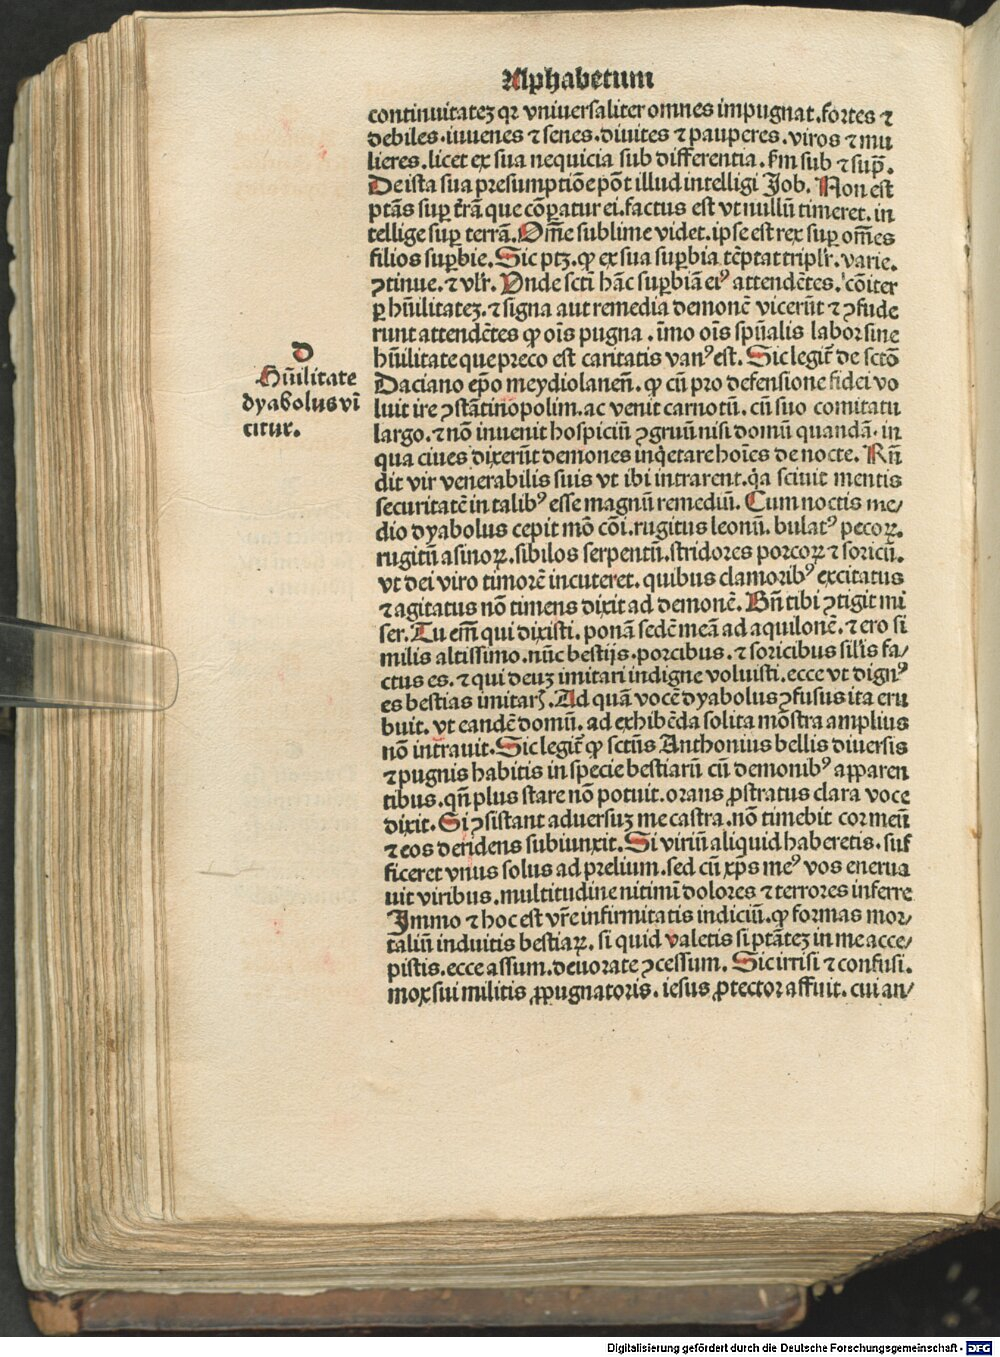 Alphabetum
continuitatez qꝛ vniuersaliter omnes impugnat. foꝛtes ⁊
debiles. iuuenes ⁊ senes. diuites ⁊ pauperes. viros ⁊ mu
lieres. licet ex sua nequicia sub differentia. ẜm sub ⁊ sup̄.
De ista sua pꝛesumptiōe pōt illud intelligi Job. Non est
ptās suꝑ t̄rā que cōꝑatur ei. factus est vt nullū timeret. in
tellige suꝑ terrā. Om̄e sublime videt. ipse est rex suꝑ om̄es
filios suꝑbie. Sic ptꝫ. ꝙ ex sua suꝑbia tēptat triplr̄. varie.
ꝯtinue. ⁊ vlr̄. Vnde scti hāc suꝑbiā eiꝰ attendētes. cōiter
ꝑ hūilitateꝫ. ⁊ signa aut remedia demonē vicerūt ⁊ ꝯfude
runt attendētes ꝙ oīs pugna. īmo oīs spūalis laboꝛ sine
hūilitate que pꝛeco est caritatis vanꝰ est. Sic legit̄ de sctō
Daciano ep̄o meydiolaneñ. ꝙ cū pꝛo defensione fidei vo
luit ire ꝯstātinopolim. ac venit carnotū. cū suo comitatu
largo. ⁊ nō inuenit hospiciū ꝯgruū nisi domū quandā. in
qua ciues dixerūt demones inq̇etare hoīes de nocte. Rñ
dit vir venerabilis suis vt ibi intrarent. q̇a sciuit mentis
securitatē in talibꝰ esse magnū remediū. Cum noctis me/
dio dyabolus cepit mō cōi. rugitus leonū. bulatꝰ pecoꝝ.
rugitū asinoꝝ. sibilos serpentū. stridoꝛes poꝛcoꝝ ⁊ soꝛicū.
vt dei viro timoꝛē incuteret. quibus clamoꝛibꝰ excitatus
⁊ agitatus nō timens dixit ad demonē. Bñ tibi ꝯtigit mi
ser. Tu em̄ qui dixisti. ponā sedē meā ad aquilonē. ⁊ ero si
milis altissimo. nūc bestijs. poꝛcibus. ⁊ soꝛicibus silis fa/
ctus es. ⁊ qui deuꝫ imitari indigne voluisti. ecce vt dignꝰ
es bestias imitaris. Ad quā vocē dyabolus ꝯfusus ita eru
buit. vt eandē domū. ad exhibēda solita mōstra amplius
nō intrauit. Sic legit̄ ꝙ sctūs Anthonius bellis diuersis
⁊ pugnis habitis in specie bestiarū cū demonibꝰ apparen
tibus. qñ plus stare nō potuit. oꝛans ꝓstratus clara voce
dixit. Si ꝯsistant aduersuꝫ me castra. nō timebit coꝛ meū
⁊ eos deridens subiunxit. Si viriū aliquid haberetis. suf
ficeret vnus solus ad pꝛelium. sed cū xp̄s meꝰ vos enerua
uit viribus. multitudine nitimī doloꝛes ⁊ terroꝛes inferre
Immo ⁊ hoc est vr̄e infirmitatis indiciū. ꝙ foꝛmas moꝛ/
taliū induitis bestiaꝝ. si quid valetis si ptāteꝫ in me acce/
pistis. ecce assum. deuoꝛate ꝯcessum. Sic irrisi ⁊ confusi.
mox sui militis ꝓpugnatoꝛis. iesus ꝓtectoꝛ affuit. cui an/
D
Hūilitate
dyabolus vī
citur.
Digitalisierung gefördert durch die Deutsche Forschungsgemeinschaft - DFG